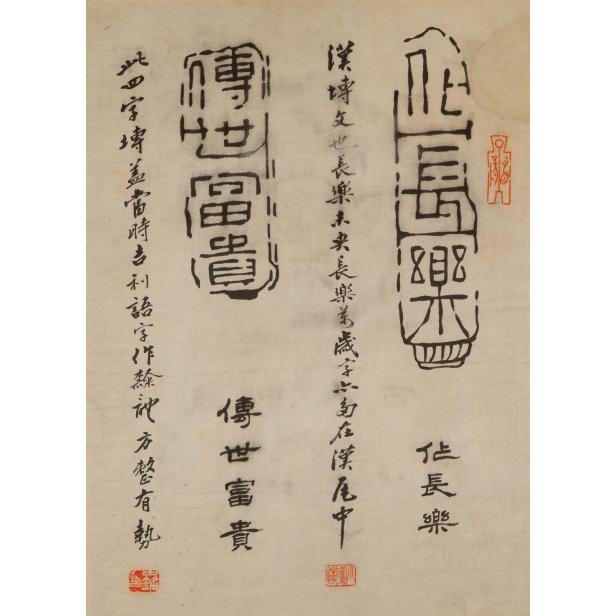 長樂
長樂
漢塼文長樂未央長樂萬歲字亦多在漢瓦中
傳世富貴
傳世富貴
此四字塼蓋當時吉利語字作方整有勢